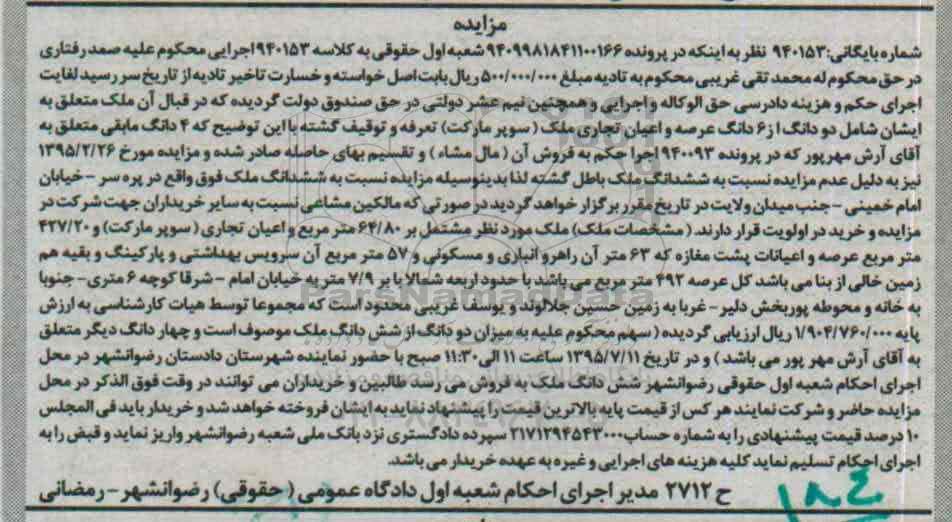 مزایده
شماره بایگانی: ۹۴۰۱۵۳ نظر به اینکه در پرونده ۹۴۰۹۹۸۱۸۴۱۱۰۰۱۶۶ شعبه اول حقوقی به کلاسه ۹۴۰۱۵۳ اجرایی محکوم علیه صمد رفتاری
در حق محکوم له محمد تقی غریبی محکوم به تادیه مبلغ ۵۰۰/۰۰۰/۰۰۰ ریال بابت اصل خواسته و خسارت تاخیر تادیه از تاریخ سر رسید لغایت
اجرای حکم و هزینه دادرسی حق الوکاله و اجرایی و همچنین نیم عشر دولتی در حق صندوق دولت گردیده که در قبال آن ملک متعلق به
ایشان شامل دو دانگ از ۶ دانگ عرصه و اعیان تجاری ملک ( سوپر مارکت) تعرفه و توقیف گشته با این توضیح که ۴ دانگ مابقی متعلق به
آقای آرش مهرپور که در پرونده ۹۴۰۰۹۳ اجرا حکم به فروش آن ( مال مشاء ) و تقسیم بهای حاصله صادر شده و مزایده مورخ ۱۳۹۵/۲/۲۶
نیز به دلیل عدم مزایده نسبت به ششدانگ ملک باطل گشته لذا بدینوسیله مزایده نسبت به ششدانگ ملک فوق واقع در پره سر - خیابان
امام خمینی - جنب میدان ولایت در تاریخ مقرر برگزار خواهد گردید در صورتی که مالکین مشاعی نسبت به سایر خریداران جهت شرکت در
مزایده و خرید در اولویت قرار دارند. ( مشخصات ملک) ملک مورد نظر مشتمل بر ۶۴/۸۰ متر مربع و اعیان تجاری ( سوپر مارکت) و ۴۲۷/۲۰
متر مربع عرصه و اعیانات پشت مغازه که ۶۳ متر آن راهرو انباری و مسکونی و ۵۷ متر مربع آن سرویس بهداشتی و پارکینگ و بقیه هم
زمین خالی از بنا می باشد کل عرصه ۴۹۲ متر مربع می باشد با حدود اربعه شمالا با بر ۷/۹ متر به خیابان امام - شرقا کوچه ۶ متری - جنوبا
به خانه و محوطه پوربخش دلیر - غربا به زمین حسین جلالوند و یوسف غریبی محدود است که مجموعا توسط هیات کارشناسی به ارزش
پایه ۱/۹۰۴/۷۶۰/۰۰۰ ریال ارزیابی گردیده ( سهم محکوم علیه به میزان دو دانگ از شش دانگ ملک موصوف است و چهار دانگ دیگر متعلق
به آقای آرش مهر پور می باشد ) و در تاریخ ۱۳۹۵/۷/۱۱ ساعت ۱۱ الی ۱۱:۳۰ صبح با حضور نماینده شهرستان دادستان رضوانشهر در محل
اجرای احکام شعبه اول حقوقی رضوانشهر شش دانگ ملک به فروش می رسد طالبین و خریداران می توانند در وقت فوق الذکر در محل
مزایده حاضر و شرکت نمایند هر کس از قیمت پایه بالاترین قیمت را پیشنهاد نماید به ایشان فروخته خواهد شد و خریدار باید فی المجلس
۱۰ درصد قیمت پیشنهادی را به شماره حساب ۲۱۷۱۲۹۴۵۴۳۰۰۰ سپرده دادگستری نزد بانک ملی شعبه رضوانشهر واریز نماید و قبض را به
اجرای احکام تسلیم نماید کلیه هزینه های اجرایی و غیره به عهده خریدار می باشد.
ح ۲۷۱۲ مدیر اجرای احکام شعبه اول دادگاه عمومی ( حقوقی) رضوانشهر - رمضانی
ParsNamadData